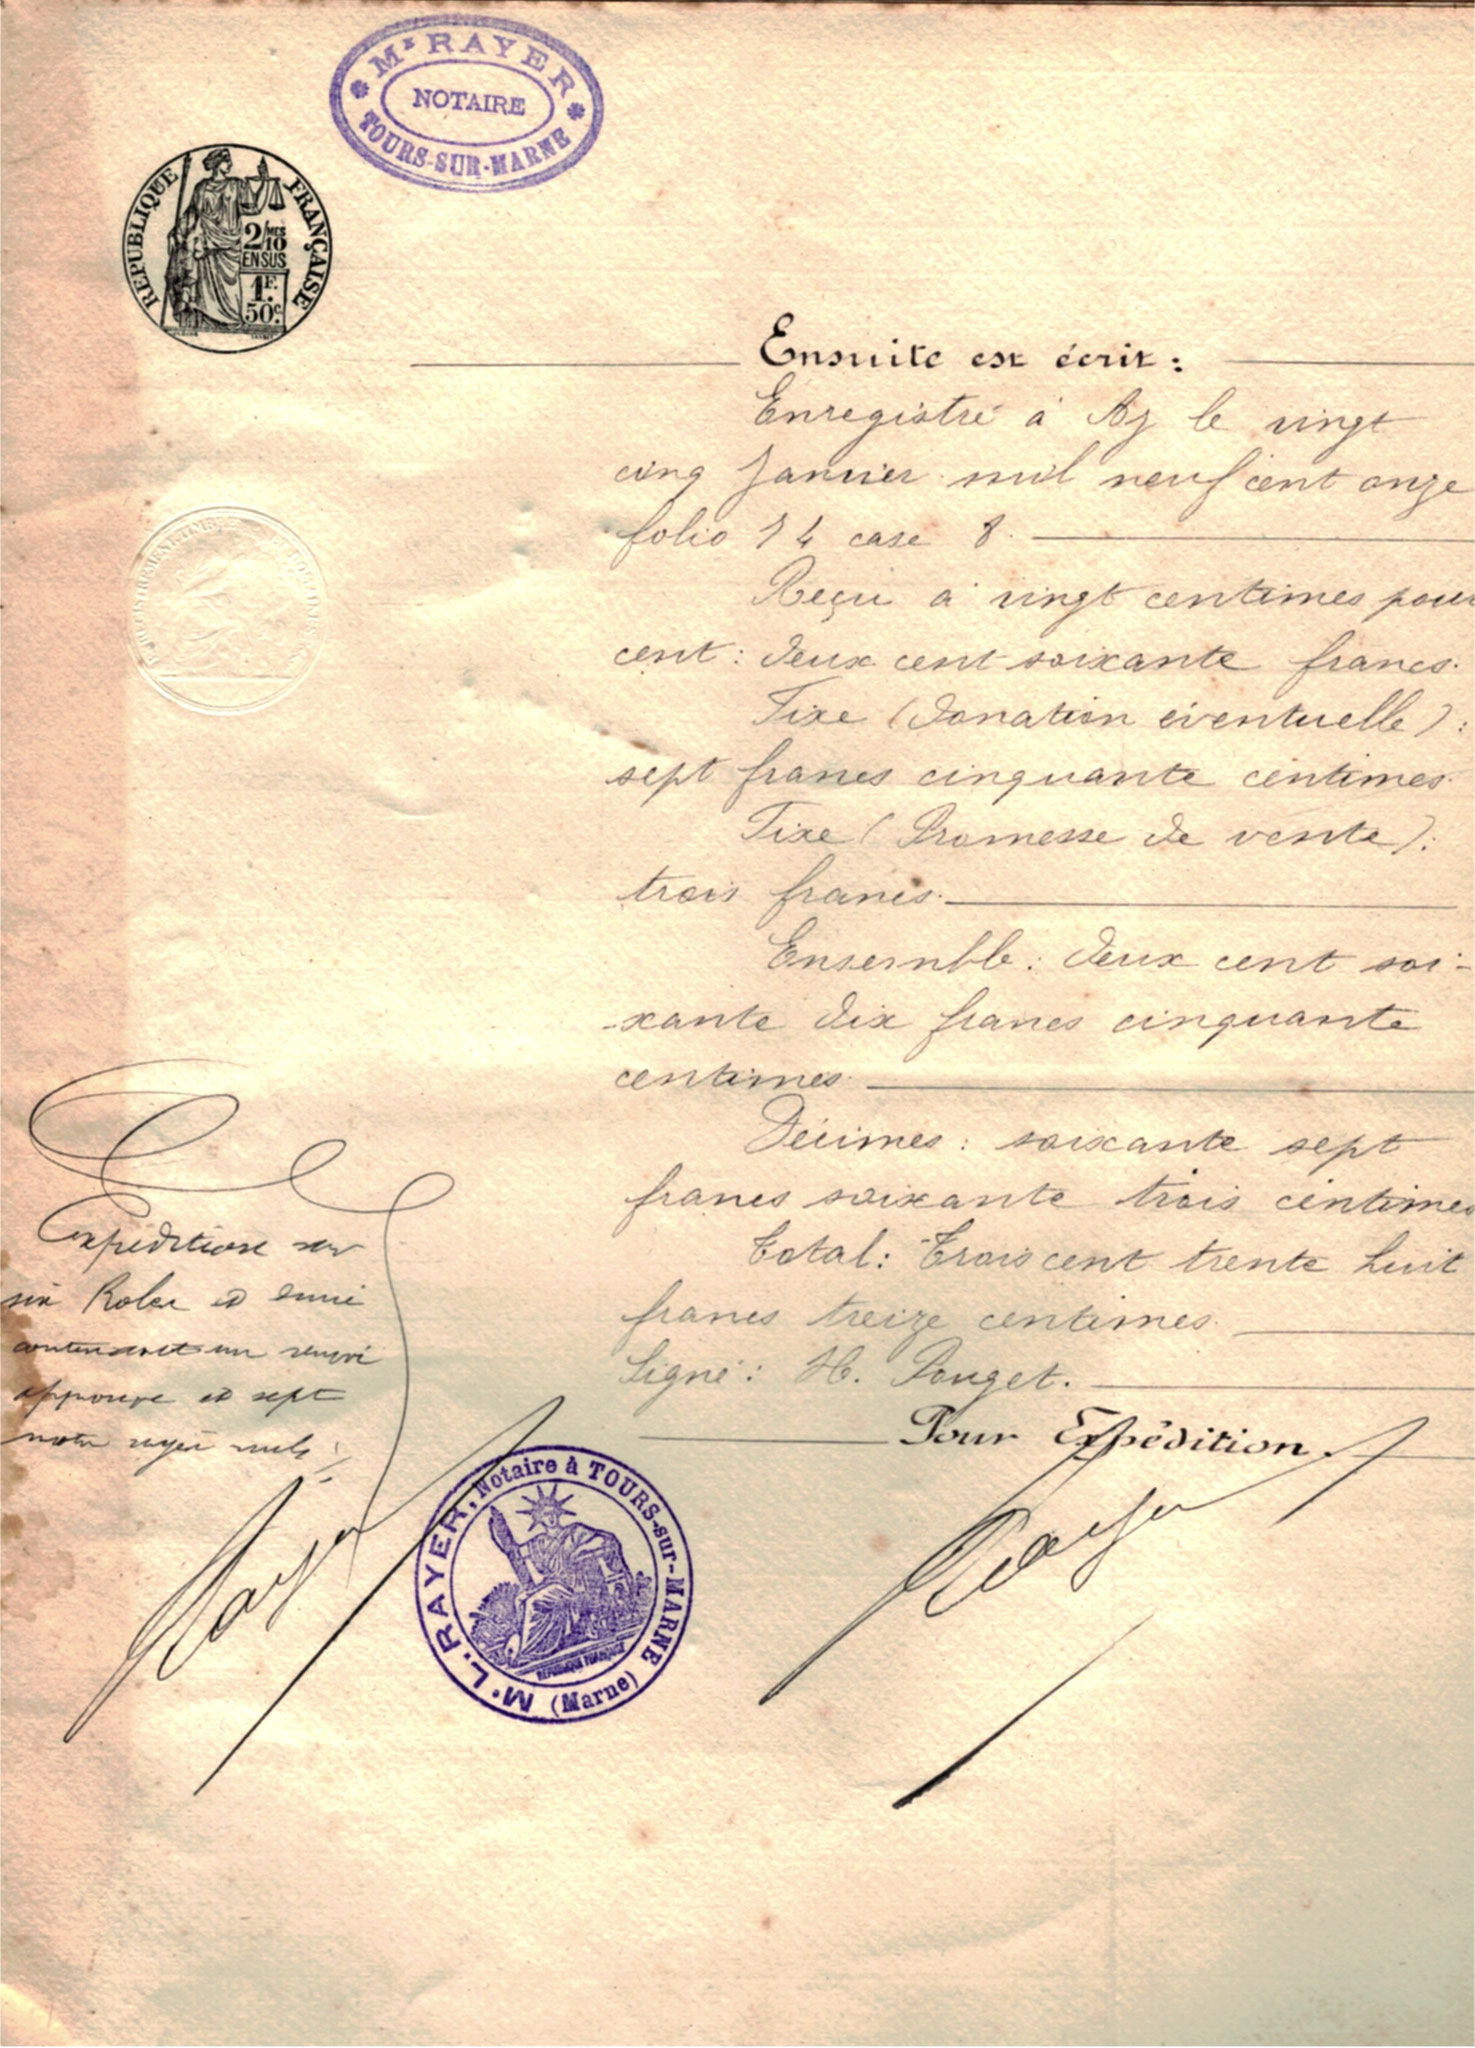 Mᵉ RAYER
NOTAIRE
TOURS-SUR-MARNE
REPUBLIQUE FRANÇAISE
2/10 MES
EN SUS
1F.
50c.
Ensuite est écrit :
Enregistré à Ay le vingt
cinq Janvier mil neuf cent onze
folio 74 case 8.
Reçu à vingt centimes pour
cent : deux cent soixante francs.
Fixe (Donation éventuelle) :
sept francs cinquante centimes.
Fixe (Promesse de vente) :
trois francs.
Ensemble : deux cent soi-
-xante dix francs cinquante
centimes.
Décimes : soixante sept
francs soixante trois centimes
Total : Trois cent trente huit
francs treize centimes.
Signé : H. Pouget.
Pour Expédition.
Rayer
Expédition sur
six Roles et demi
contenant un renvoi
approuvé et sept
mots rayés nuls
Rayer
Mᵉ L. RAYER, Notaire à TOURS-sur-MARNE (Marne)
REPUBLIQUE FRANÇAISE